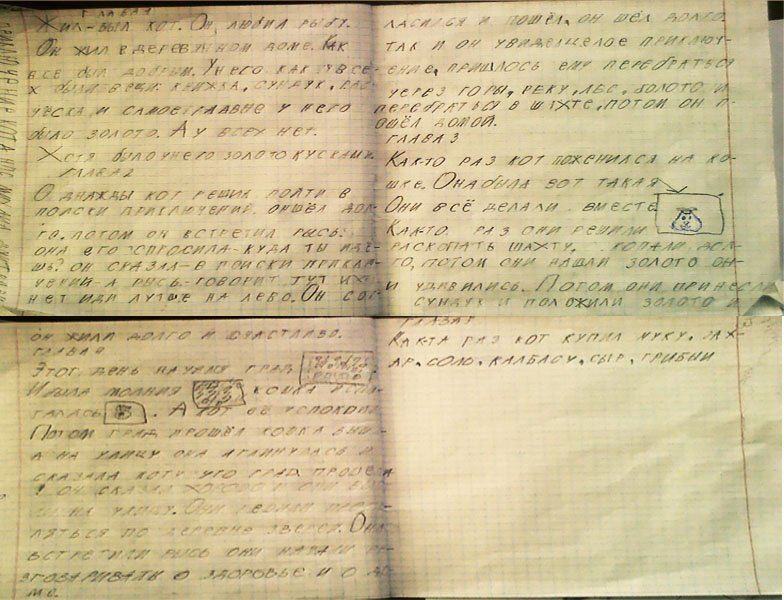 ГЛАВА 1
ЖИЛ-БЫЛ КОТ. ОН ЛЮБИЛ РЫБУ.
ОН ЖИЛ В ДЕРЕВЯННОМ ДОМЕ. КАК
ВСЕ БЫЛ ДОБРЫМ. У НЕГО КАК У ВСЕ-
Х БЫЛИ ВЕЩИ: КНИЖКА, СУНДУК,
И САМОЕ ГЛАВНЕ У НЕГО
БЫЛО ЗОЛОТО. А У ВСЕХ НЕТ.
ХОТЯ БЫЛО У НЕГО ЗОЛОТО КУСКАМИ.
ГЛАВА 2
ОДНАЖДЫ КОТ РЕШИЛ ПОЙТИ В
ПОИСКИ ПРИКЛЮЧЕНИЙ. ОН ШЁЛ ДОЛ-
ГО, ПОТОМ ОН ВСТРЕТИЛ РЫСЬ.
ОНА ЕГО СПРОСИЛА-КУДА ТЫ ИДЁ-
ШЬ? ОН СКАЗАЛ-В ПОИСКИ ПРИКЛЮ-
ЧЕНИЙ-А РЫСЬ-ГОВОРИТ ТУТ ИХ
НЕТ ИДИ ЛУТШЕ НА ЛЕВО. ОН СОГ-
ЛАСИЛСЯ И ПОШЁЛ, ОН ШЁЛ ДОЛГО.
ТАК И ОН УВИДЕЛ ЦЕЛОЕ ПРИКЛЮЧ-
ЕНИЕ, ПРИШЛОСЬ ЕМУ ПЕРЕБРАТЬСЯ
ЧЕРЕЗ ГОРЫ, РЕКУ, ЛЕС, БОЛОТО, И
ПЕРЕБРАТЬСЯ В ШАХТЕ, ПОТОМ ОН П-
ОШЁЛ ДОМОЙ.
ГЛАВА 3
КАК-ТО РАЗ КОТ ПОЖЕНИЛСЯ НА КО-
ШКЕ. ОНА БЫЛА ВОТ ТАКАЯ
ОНИ ВСЁ ДЕЛАЛИ ВМЕСТЕ
КАК-ТО РАЗ ОНИ РЕШИЛИ
РАСКОПАТЬ ШАХТУ. КОПАЛИ ДОЛ-
ГО, ПОТОМ ОНИ НАШЛИ ЗОЛОТО ОН-
И УДИВИЛИСЬ. ПОТОМ ОНИ ПРИНЕСЛИ
СУНДУК И ПОЛОЖИЛИ ЗОЛОТО И
ОН ЖИЛИ ДОЛГО И СЧАСТЛИВО.
ГЛАВА 4
ЭТОТ ДЕНЬ НАЧАЛСЯ ГРАД
И БЫЛА МОЛНИЯ КОШКА ИСПУ-
ГАЛАСЬ. А КОТ ЕЁ УСПОКОИЛ
ПОТОМ ГРАД ПРОШЁЛ КОШКА ВЫШ-
Л-
А НА УЛИЦУ ОНА АГЛИНУЛАСЬ И
СКАЗАЛА КОТУ ЧТО ГРАД ПРОШЁЛ
ОН СКАЗАЛ ХОРОШО И ОНИ
НА УЛИЦУ. ОНИ РЕШИЛИ
ПО ДЕРЕВНЕ ЗВЕРЕЙ. ОНИ
ВСТРЕТИЛИ РЫСЬ ОНИ НАЧАЛИ РА-
ЗГОВАРИВАТЬ О ЗДОРОВЬЕ И О ДО-
МЕ.
ГЛАВА
КАК-ТА РАЗ КОТ КУПИЛ МУКУ, ЗАХ-
АР, СОЛО, КАЛБАСУ, СЫР, ГРИБЫИ